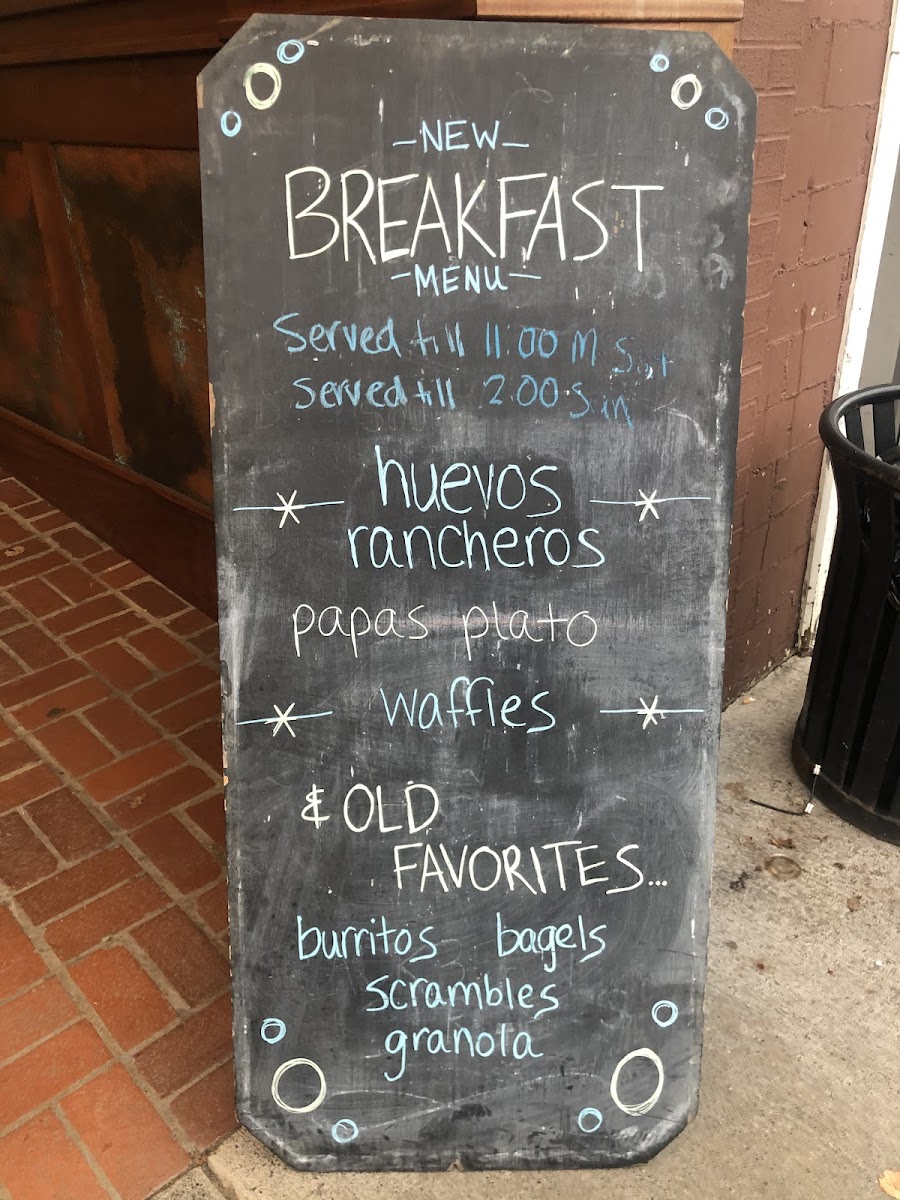 -NEW-
BREAKFAST
-MENU-
Served till 11:00 M Sat
Served till 2:00 Sun
huevos
rancheros
papas plato
waffles
& OLD
FAVORITES...
burritos bagels
scrambles
granola